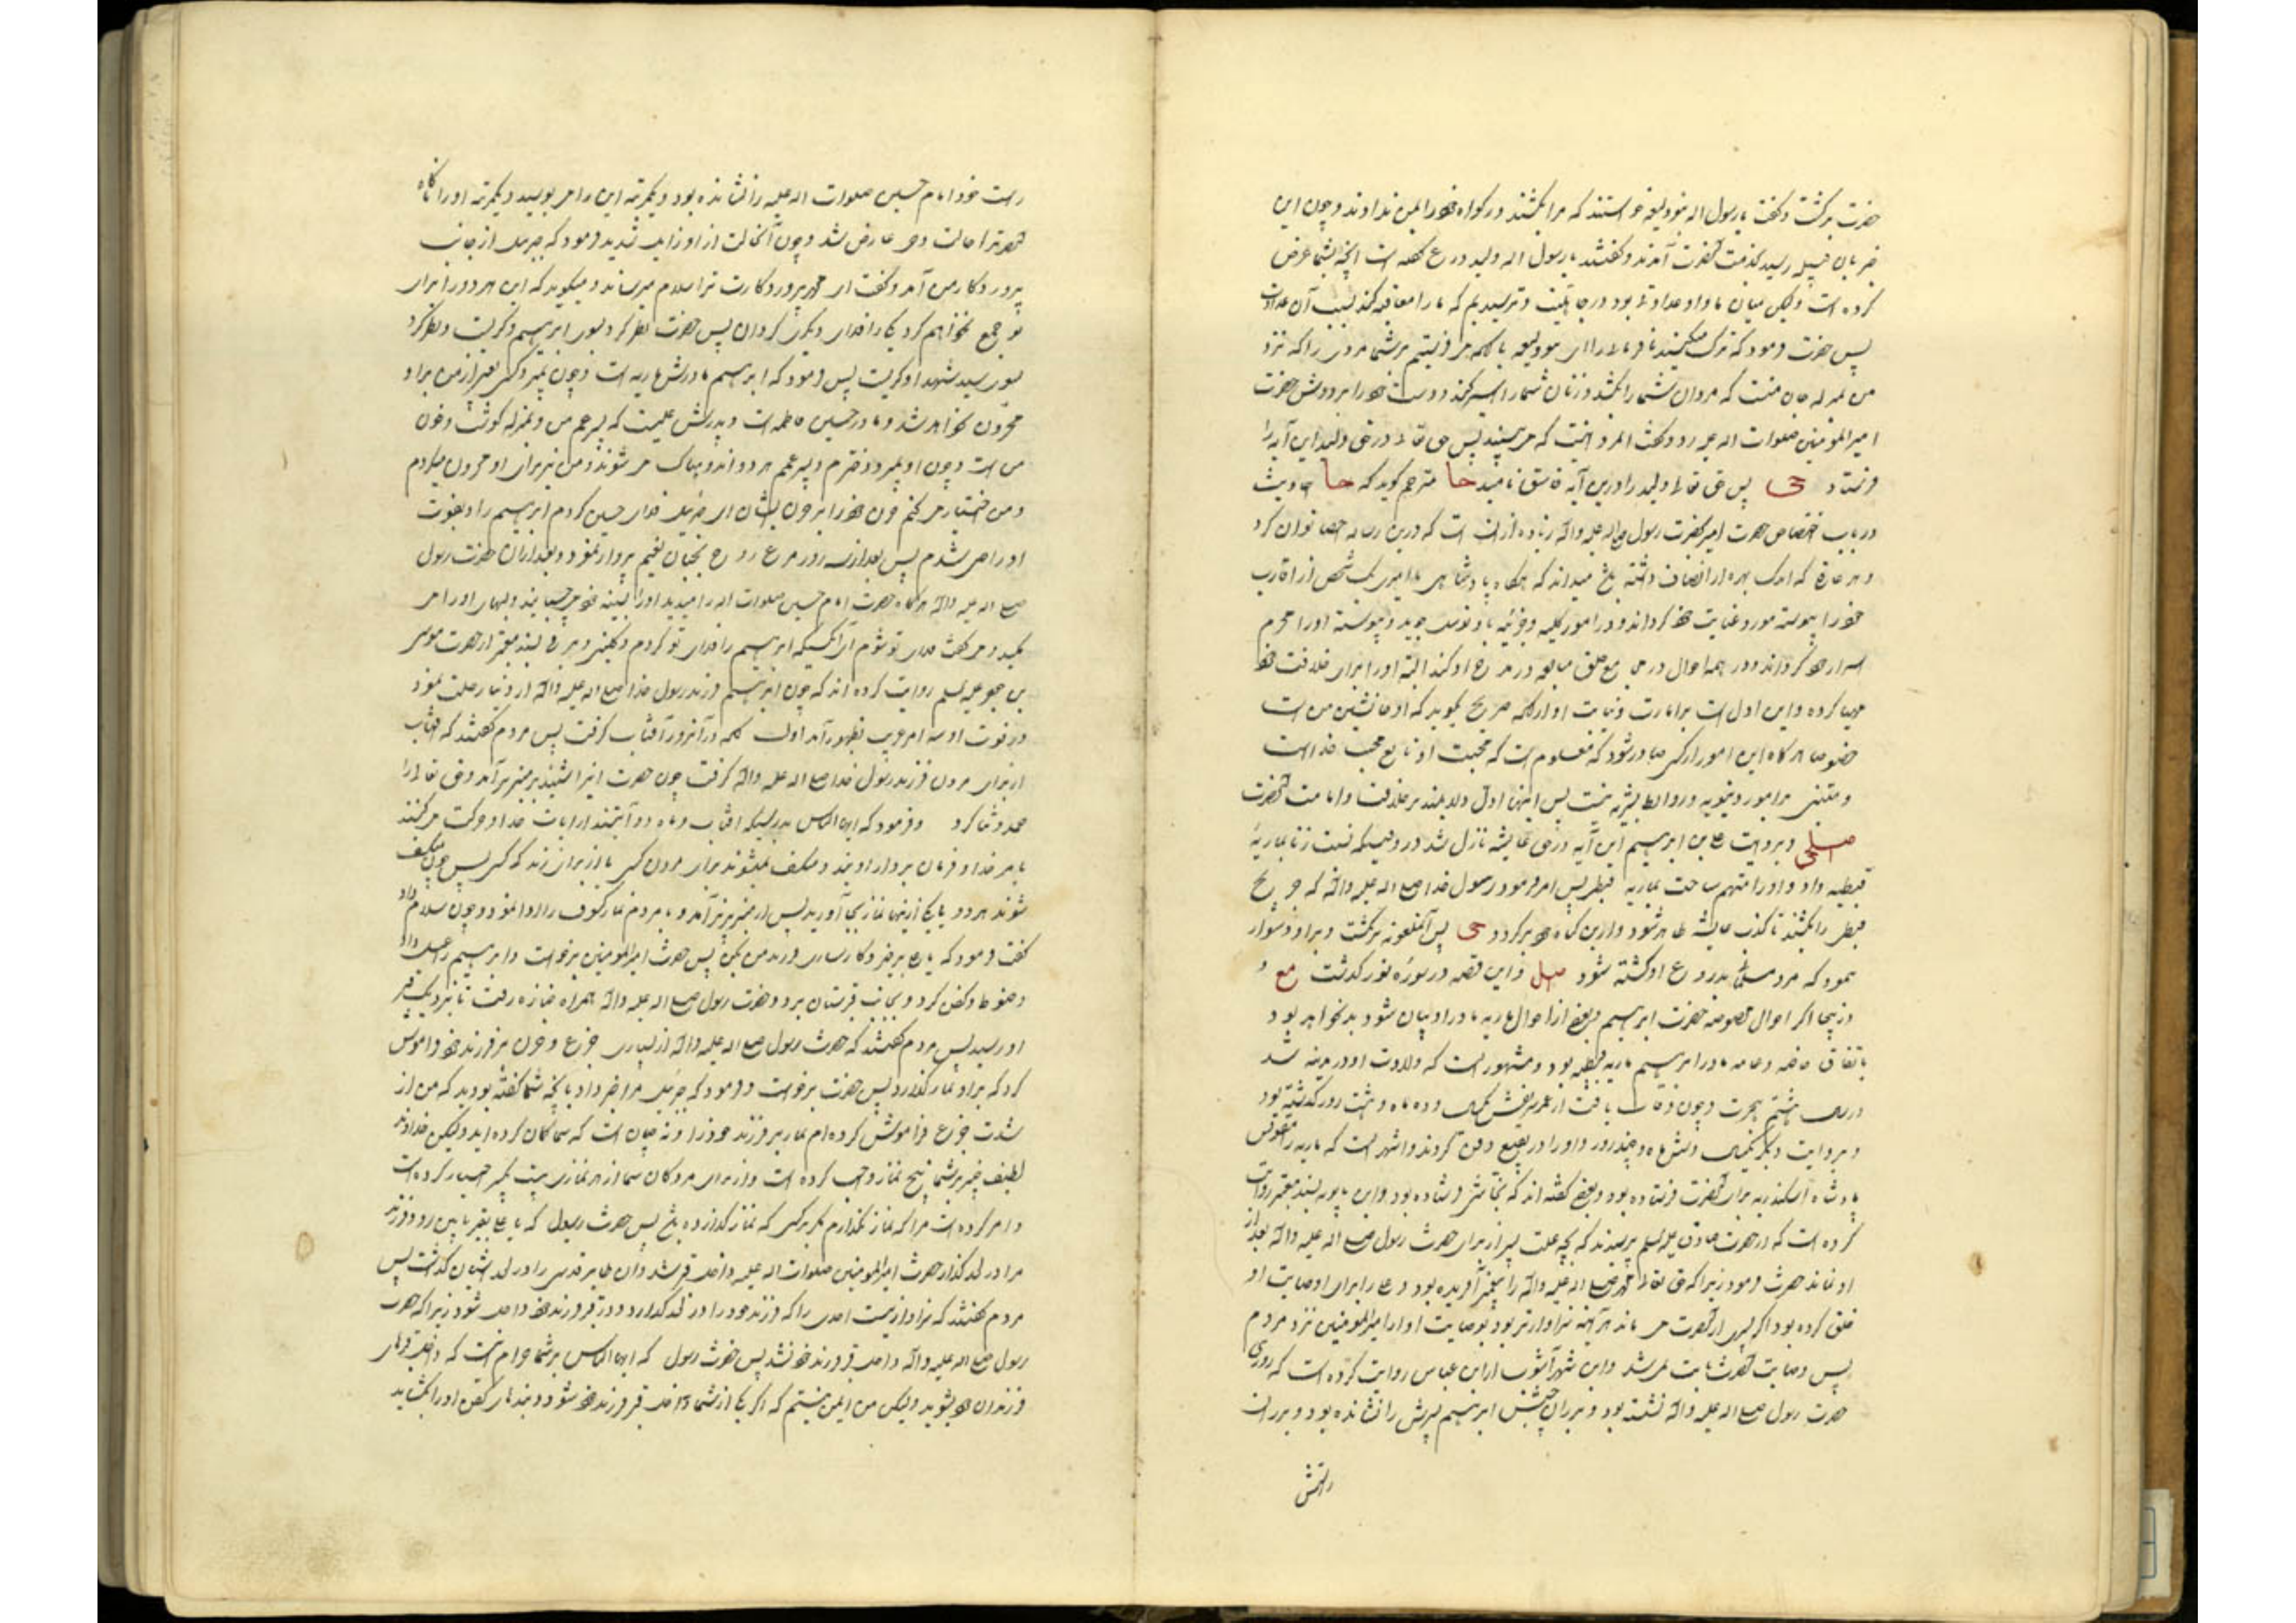 حضرت برگشت و گفت یا رسول اله بنو ولیعه خواستند که مرا بکشند و زکوة خود را بمن ندادند و چون این
خبر بآن قبیله رسید بخدمت آنحضرت آمدند و گفتند یا رسول اله ولید دروغ گفته است آنچه بشما عرض
کرده است ولیکن میان ما و او عداوتی بود در جاهلیت و ترسیدیم که ما را معاقبه کند بسبب آن عداوت
پس حضرت فرمود که ترک میکنید نافرمانی را ای بنو ولیعه یا آنکه میفرستیم بر شما مردی را که نزد
من بمنزله جان منست که مردان شما را بکشد و زنان شما را اسیر کند و دست خود را بر دوش حضرت
امیرالمؤمنین صلوات اله علیه زد و گفت آنمرد اینست که می بینید پس حق تعالی در حق ولید این آیه را
فرستاد پس حق تعالی ولید را درین آیه فاسق نامید مترجم گوید که احادیث
در باب اختصاص حضرت امیر بحضرت رسول صلی اله علیه واله زیاده از آنست که درین رساله احصا توان کرد
و هر عاقلی که اندک بهره از انصاف داشته باشد میداند که هرگاه پادشاهی یا امیری یک شخص از اقارب
خود را پیوسته مورد عنایت خود گرداند و در امور کلیه و جزئیه باو توسل جوید و پیوسته او را محرم
اسرار خود گرداند و در همه احوال در مجامع خلق مبالغه در مدح او کند البته او را برای خلافت خود
مهیا کرده و این اولست بر امارت و نیابت او از آنکه صریح بگوید که او جانشین من است
خصوصا هرگاه این امور از کسی صادر شود که معلوم است که محبت او تابع محبت خداست
و مبتنی بر امور دنیویه و روابط بشریه نیست پس اینها ادل دلایلند بر خلافت و امامت آنحضرت
و بروایت علی بن ابرهیم این آیه در حق عایشه نازل شد در وقتیکه نسبت زنا بماریهٔ
قبطیه داد و او را متهم ساخت بماریه قبطی پس امر فرمود رسول خدا صلی اله علیه واله که جریح
قبطی را بکشند تا کذب عایشه ظاهر شود و از این گناه خود برگردد پس آنملعونه برنگشت و بر او دشوار
نمود که مرد مسلمانی بدروغ او کشته شود و این قصه در سورهٔ نور گذشت
در اینجا اگر احوال خصوصه حضرت ابرهیم و بعضی از احوال ماریه مادر او بیان شود بد نخواهد بود
باتفاق خاصه و عامه مادر ابرهیم ماریه قبطیه بود و مشهور است که ولادت او در مدینه شد
در سال هشتم هجرت و چون وفات یافت از عمر شریفش یکسال و ده ماه و هشت روز گذشته بود
و بروایت دیگر یکسال و شش ماه و چند روز و او را در بقیع دفن کردند و اشهر است که ماریه را مقوقس
پادشاه اسکندریه برای آنحضرت فرستاده بود و بعضی گفته اند که نجاشی فرستاده بود و ابن بابویه بسند معتبر روایت
کرده است که از حضرت صادق علیه السلم پرسیدند که بچه علت پسر از برای حضرت رسول صلی اله علیه واله بعد از
او نماند حضرت فرمود زیرا که حق تعالی محمد صلی اله علیه واله را پیغمبر آفریده بود و علی را برای وصایت او
خلق کرده بود اگر پسری از آنحضرت می ماند هرآینه سزاوارتر بود بوصایت او از امیرالمؤمنین نزد مردم
پس وصایت آنحضرت ثابت نمی شد و ابن شهرآشوب از ابن عباس روایت کرده است که روزی
حضرت رسول صلی اله علیه واله نشسته بود و بر ران چپش ابرهیم پسرش را نشانده بود و بر ران
راستش
راست خود امام حسین صلوات اله علیه را نشانده بود و یکمرتبه این را می بوسید و یکمرتبه او را ناگاه
آنحضرترا حالت وحی عارض شد و چون آنحالت از او زایل شد فرمود که جبرئیل از جانب
پروردگار من آمد و گفت ای محمد پروردگارت ترا سلام میرساند و میگوید که این هر دو را برای
تو جمع نخواهم کرد یکی را فدای دیگری گردان پس حضرت نظر کرد بسوی ابرهیم و گریست و نظر کرد
بسوی سید شهدا و گریست پس فرمود که ابرهیم مادرش ماریه است و چون بمیرد کسی بغیر از من بر او
محزون نخواهد شد و مادر حسین فاطمه است و پدرش علیست که پسر عم من و بمنزله گوشت و خون
من است و چون او بمیرد دخترم و پسر عمم هر دو اندوهناک می شوند و من نیز بر او محزون میگردم
و من اختیار می کنم حزن خود را بر حزن ایشان ای جبرئیل فدای حسین کردم ابرهیم را و بفوت
او راضی شدم پس بعد از سه روز مرغ روح ابرهیم بجنان نعیم پرواز نمود و بعد از آن حضرت رسول
صلی اله علیه واله هرگاه حضرت امام حسین صلوات اله را میدید او را بسینه خود می چسبانید و لبهای او را می
مکید و می گفت فدای تو شوم ای آنکسیکه ابرهیم را فدای تو کردم و کلینی و برقی بسند معتبر از حضرت موسی
بن جعفر علیه السلم روایت کرده اند که چون ابرهیم فرزند رسول خدا صلی اله علیه واله از دنیا رحلت نمود
در فوت او سه امر غریب بظهور آمد اول آنکه در آنروز آفتاب گرفت پس مردم گفتند که آفتاب
از برای مردن فرزند رسول خدا صلی اله علیه واله گرفت چون حضرت اینرا شنید بر منبر برآمد و حق تعالی را
حمد و ثنا کرد و فرمود که ایها الناس بدرستیکه آفتاب و ماه دو آیتند از آیات خدا و حرکت می کنند
بامر خدا و فرمان بردار اویند و منکسف نمیشوند برای مردن کسی یا از برای زندگی کسی پس چون منکسف
شوند هر دو یا یکی از اینها نماز بجا آورید پس از منبر بزیر آمد و با مردم نماز کسوف را ادا نمود و چون سلام داد
گفت فرمود که یا علی برخیز و کارسازی فرزند من بکن پس حضرت امیرالمؤمنین برخواست و ابرهیم را غسل داد
و حنوط و کفن کرد و بجانب قبرستان برد و حضرت رسول صلی اله علیه واله همراه جنازه رفت تا نزدیک قبر
او رسید پس مردم گفتند که حضرت رسول صلی اله علیه واله از بسیاری جزع و حزن بر فرزند خود فراموش
کرد که بر او نماز گذارد پس حضرت برخواست و فرمود که جبرئیل مرا خبر داد بآنچه شما گفته بودید که من از
شدت جزع فراموش کرده ام نماز بر فرزند خود را و نه چنان است که شما گمان کرده اید ولیکن خداوند
لطیف خبیر بر شما پنج نماز واجب کرده است و از برای مردگان شما از هر نمازی یک تکبیر اختیار کرده است
و امر کرده است مرا که نماز نگذارم مگر بر کسی که نماز گذارده باشد پس حضرت رسول که یا علی بقبر پایین رو و فرزند
مرا در لحد گذار حضرت امیرالمؤمنین صلوات اله علیه داخل قبر شد و آن طایر قدسی را در لحد آشیان گذاشت پس
مردم گفتند که سزاوار نیست احدی را که فرزند خود را در لحد گذارد و در قبر فرزند خود داخل شود زیرا که حضرت
رسول صلی اله علیه واله داخل قبر فرزند خود نشد پس حضرت رسول که ایها الناس بر شما حرام نیست که داخل قبرهای
فرزندان خود بشوید ولیکن من ایمن نیستم که اگر یکی از شما داخل قبر فرزند خود شود و بندهای کفن او را بگشاید